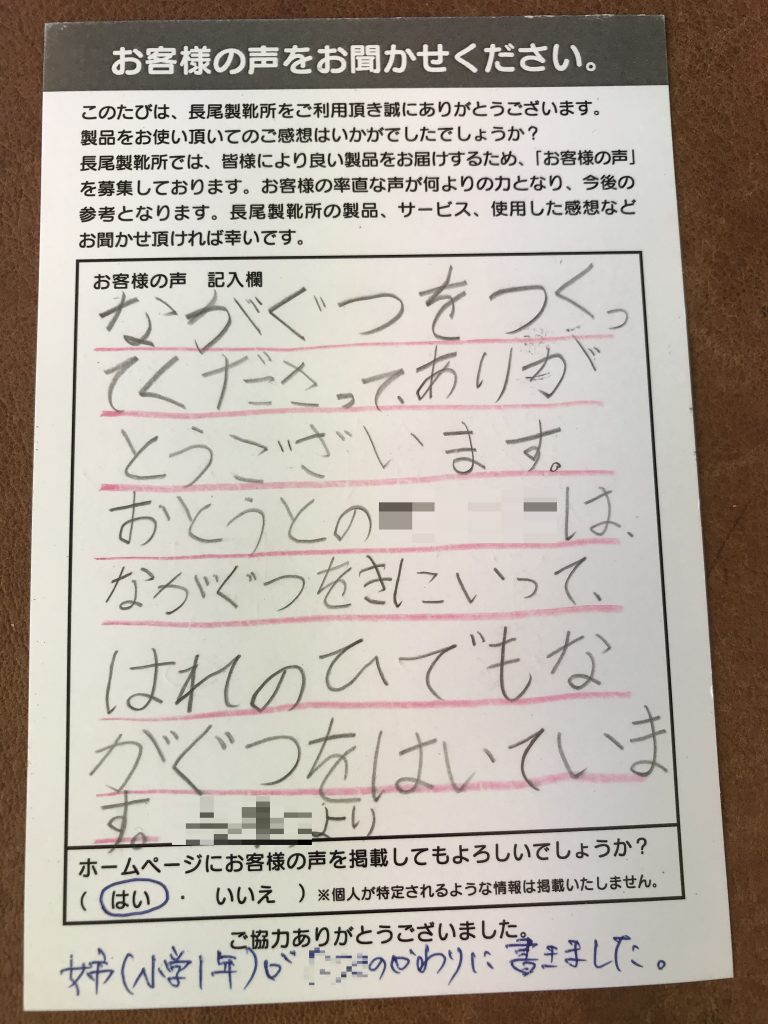 お客様の声をお聞かせください。
このたびは、長尾製靴所をご利用頂き誠にありがとうございます。
製品をお使い頂いてのご感想はいかがでしたでしょうか？
長尾製靴所では、皆様により良い製品をお届けするため、「お客様の声」
を募集しております。お客様の率直な声が何よりの力となり、今後の
参考となります。長尾製靴所の製品、サービス、使用した感想など
お聞かせ頂ければ幸いです。
お客様の声 記入欄
ながぐつをつくっ
てくださって、ありが
とうございます。
おとうとの は、
ながぐつをきにいって、
はれのひでもな
がぐつをはいていま
す。 より
ホームページにお客様の声を掲載してもよろしいでしょうか？
( はい ・ いいえ ) ※個人が特定されるような情報は掲載いたしません。
ご協力ありがとうございました。
姉(小学1年)が のかわりに書きました。